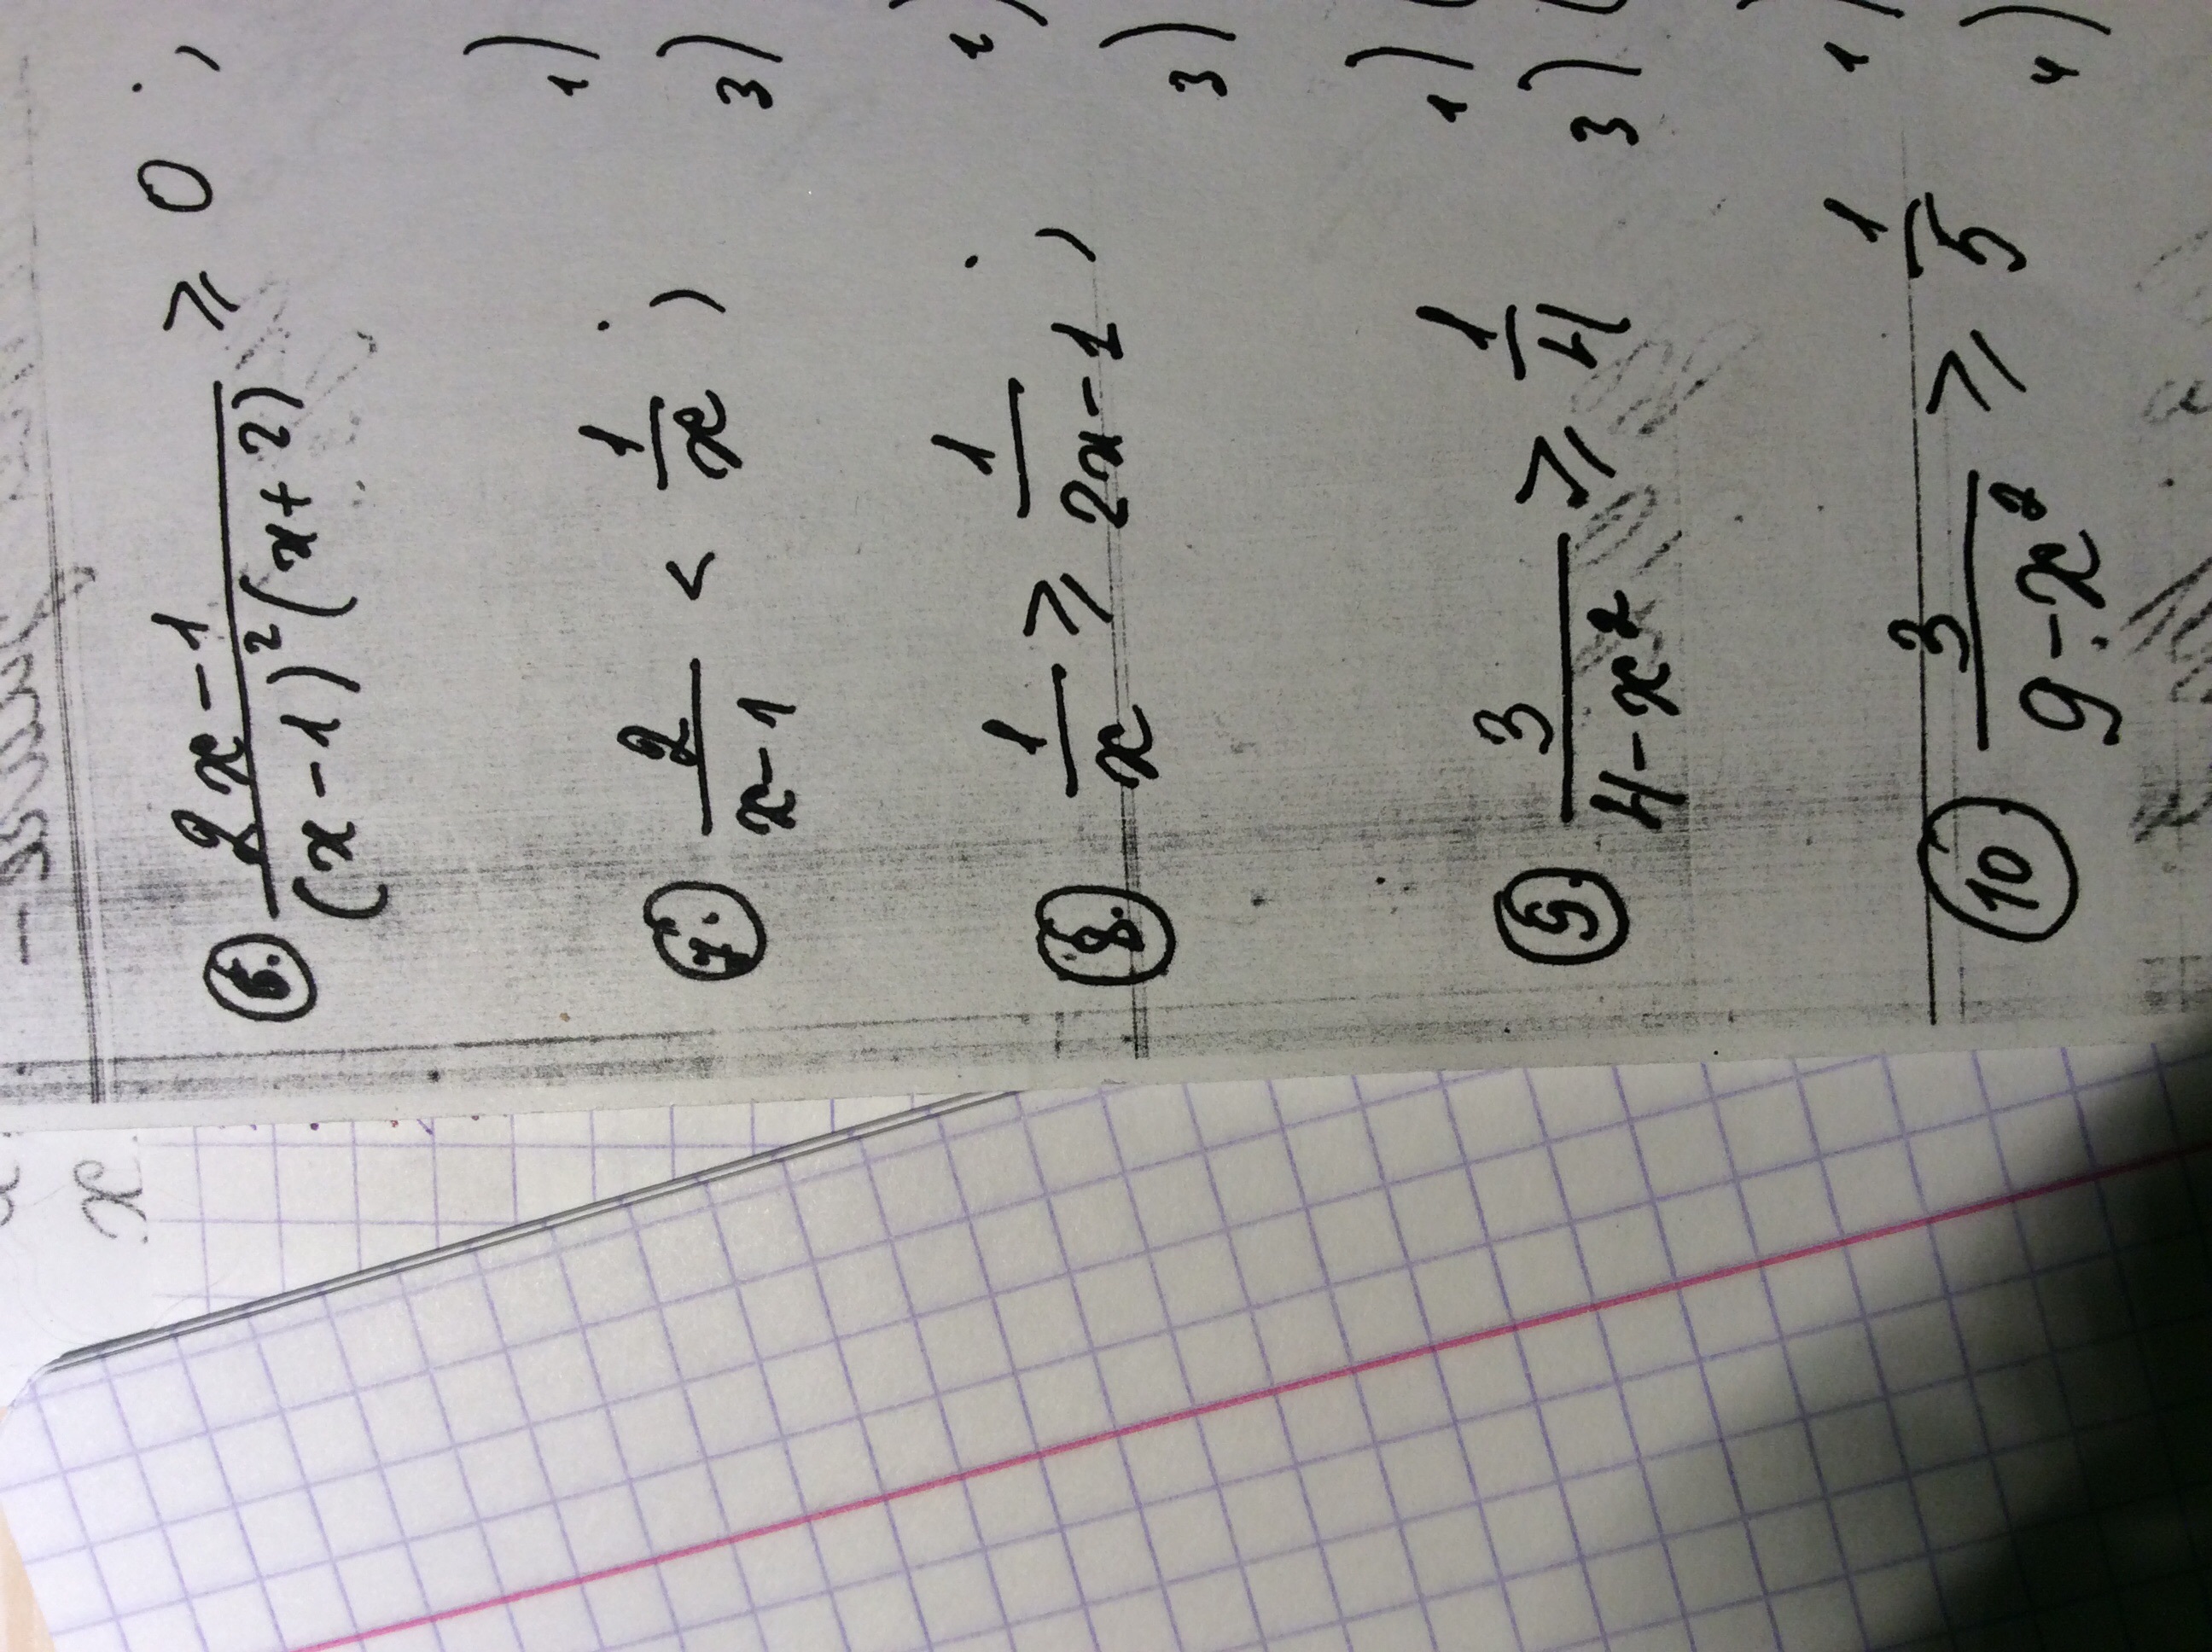 6. (2x-1)/((x-1)²(x+2)) ⩾ 0;
7. 2/(x-1) < 1/x; 1) 3)
8. 1/x ⩾ 1/(2x-1); 1) 3)
9. 3/(4-x²) ⩾ 1/4 1) 3)
10 3/(9-x²) ⩾ 1/5 1) 4)
x